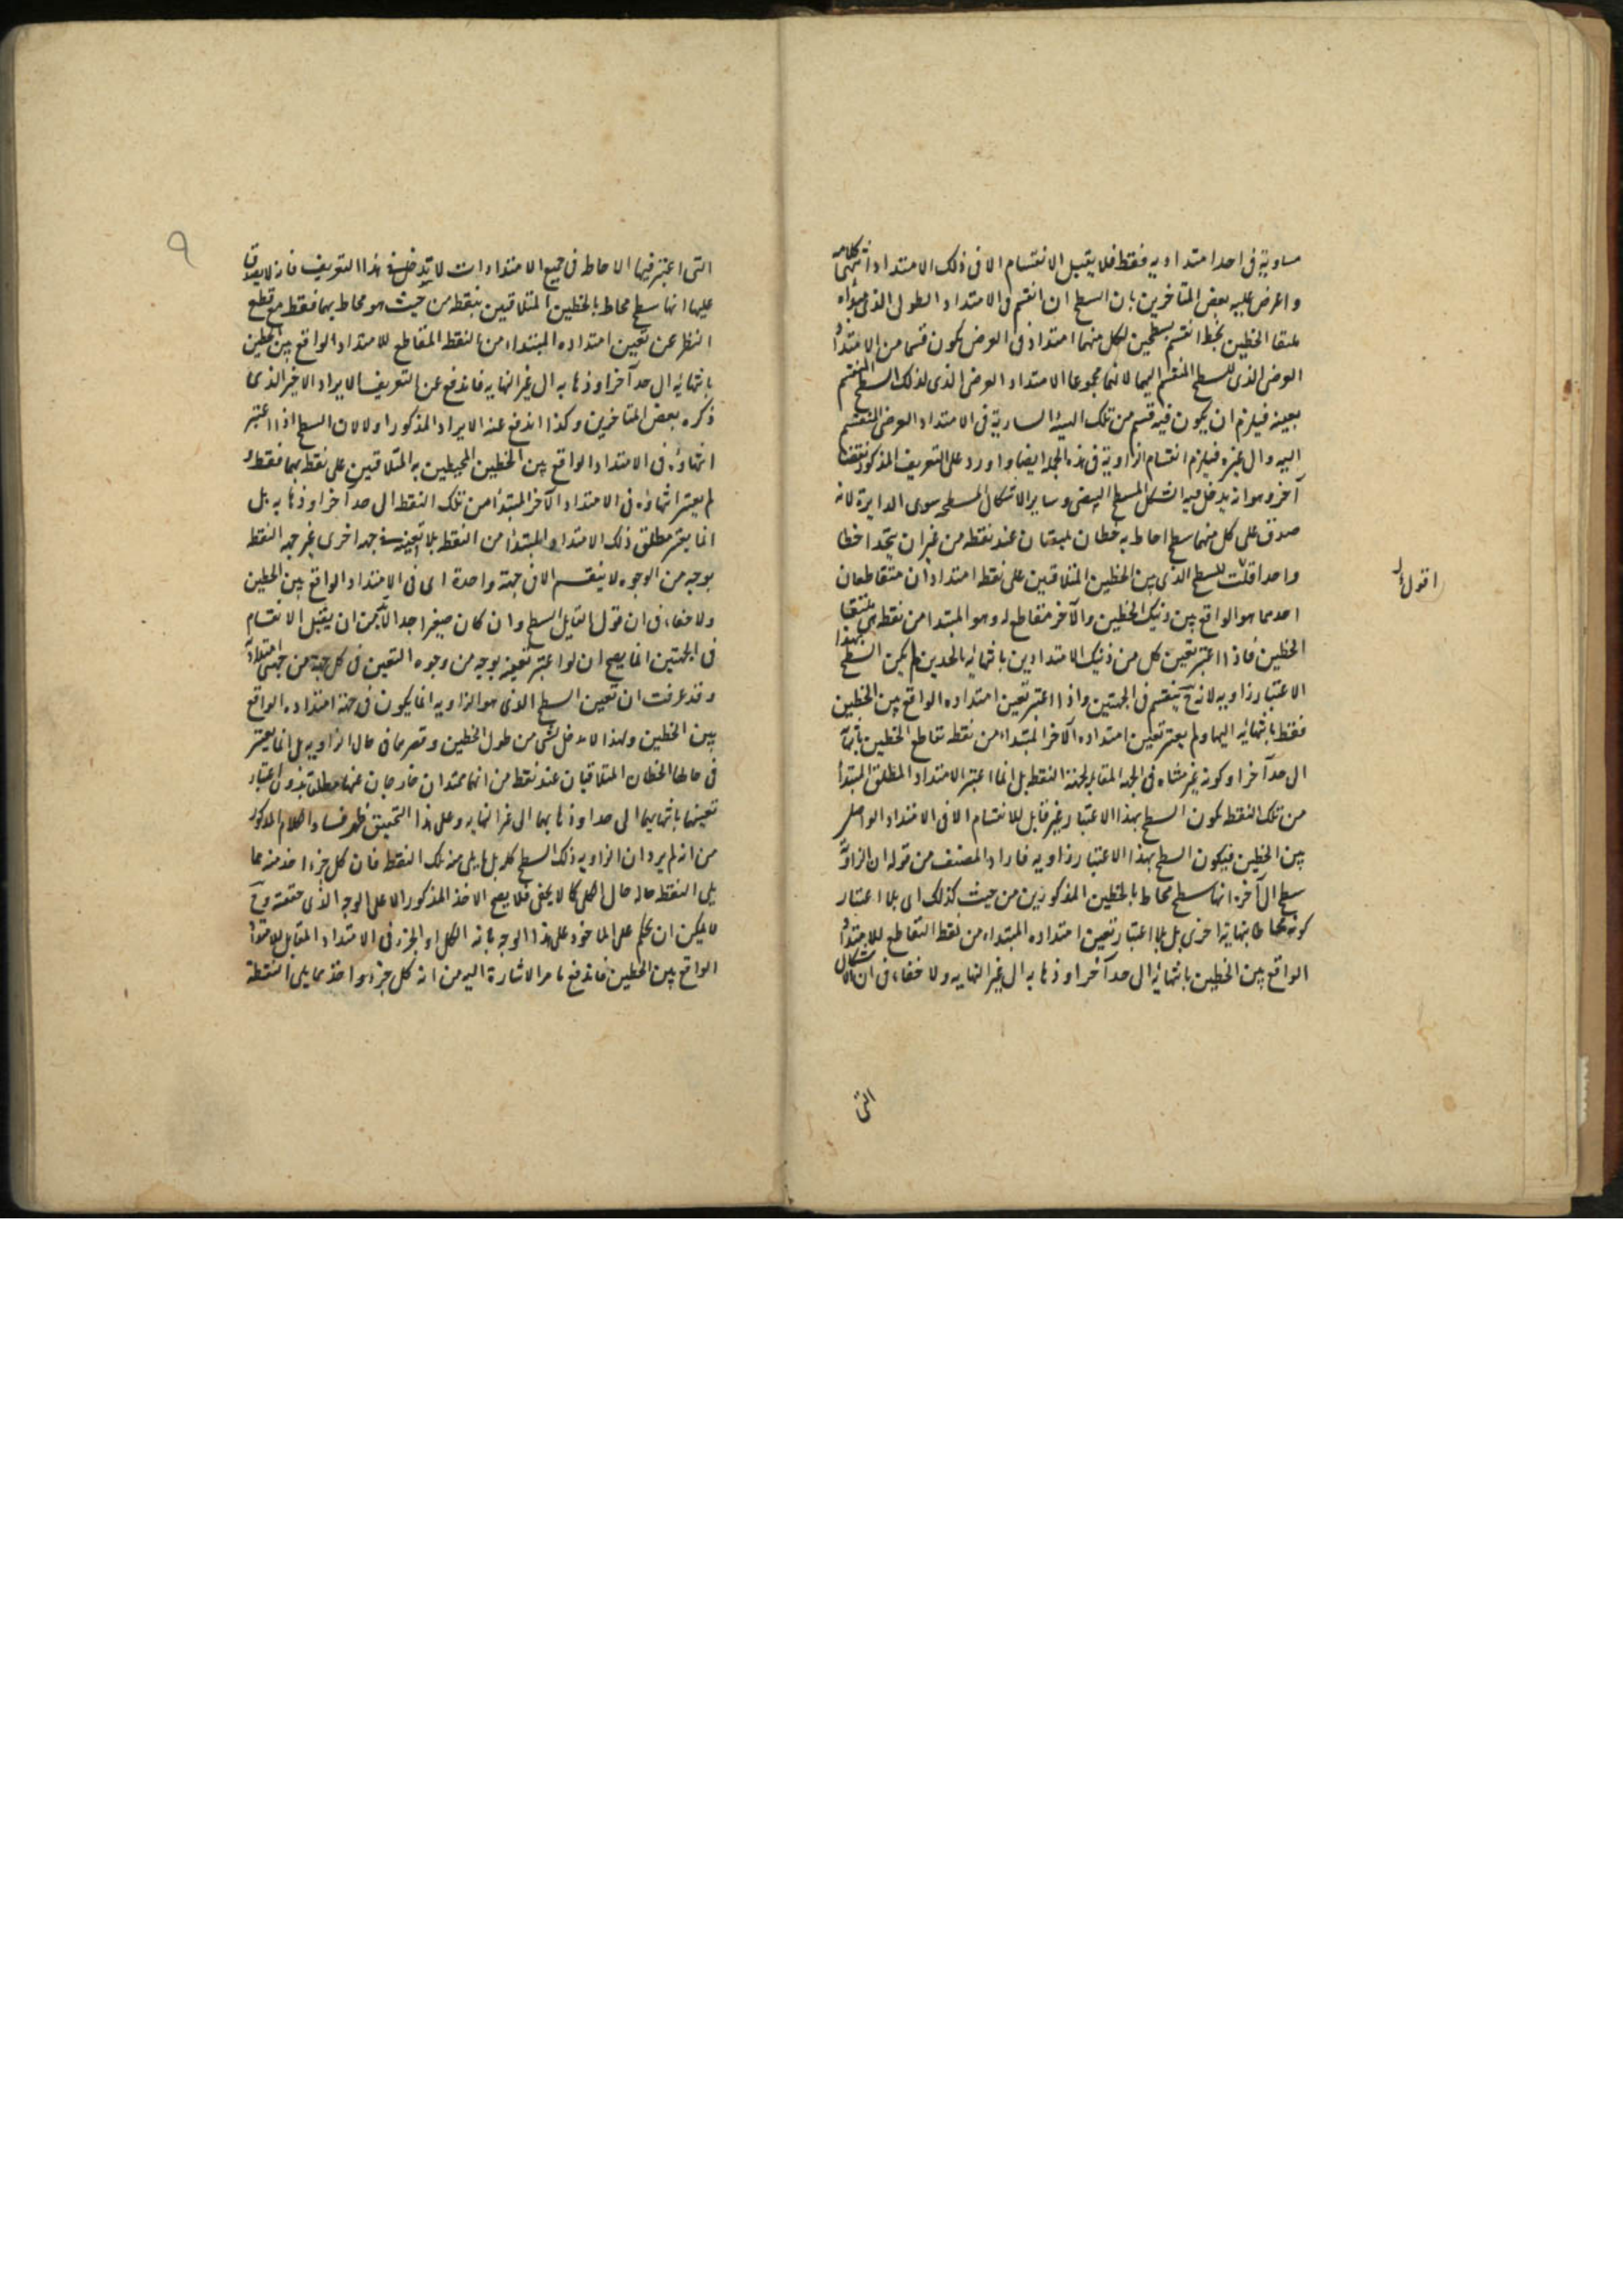 مساوية فى احد امتداديه فقط فلا يقبل الانقسام الا فى ذلك الامتداد انتهى كلامه
واعرض عليه بعض المتاخرين بان السطح ان انقسم فى الامتداد الطولى الذى مبدأه
ملتقا الخطين بخط انقسم بسطحين لكل منهما امتداد فى العرض يكون قسما من الامتداد
العرضى الذى للسطح المنقسم اليهما لانهما مجموعا الامتداد العرضى الذى لذلك السطح المنقسم
بعينه فيلزم ان يكون فيه قسم من تلك الهيئة السارية فى الامتداد العرضى المنقسم
اليه والى غيره فيلزم انقسام الزاوية فى هذه الجهة ايضا واورد على التعريف المذكور نقضا
آخر وهو انه يدخل فيه الشكل المسطح البيضى وساير الاشكال المسطحه سوى الدايرة لانه
صدق على كل منهما سطح احاط به خطان يلتقيان عند نقطه من غير ان يتحدا خطا
واحدا قلت للسطح الذى بين الخطين المتلاقيين على نقطه امتدادان متقاطعان
اقول
احدهما هو الواقع بين ذنيك الخطين والآخر مقاطع له وهو المبتدا من نقطه هى ملتقا
الخطين فاذا اعتبر تعين كل من ذنيك الامتدادين بانتهائه الحدين لم يكن السطح بهذا
الاعتبار زاويه لانه ح ينقسم فى الجهتين واذا اعتبر تعين امتداده الواقع بين الخطين
فقط بانتهائه اليهما ولم يعتبر تعين امتداده الآخر المبتداء من نقطه تقاطع الخطين بانتهائه
الى حد آخر او كونه غير متناه فى الجهه المقابله لجهة النقطه بل انما اعتبر الامتداد المطلق المبتدأ
من تلك النقطه يكون السطح بهذا الاعتبار غير قابل للانقسام الا فى الامتداد الواصل
بين الخطين فيكون السطح بهذا الاعتبار زاويه فاراد المصنف من قوله ان الزاوية
سطح الى آخره انها سطح محاط بالخطين المذكورين من حيث كذلك اى بلا اعتبار
كونه محاطا بنهاية اخرى بل بلا اعتبار تعين امتداده المبتداء من نقطه التقاطع للامتداد
الواقع بين الخطين بانتهائه الى حد آخر او ذهابه الى غير النهايه ولا خفاء فى ان الاشكال
التى
٩
التى اعتبر فيها الاحاطه فى جميع الامتدادات لا تدخل فى هذا التعريف فانه لا يصدق
عليها انها سطح محاط بالخطين المتلاقيين بنقطه من حيث هو محاط بهما فقط مع قطع
النظر عن تعين امتداده المبتداء من النقطه المقاطع للامتداد الواقع بين الخطين
بانتهائه الى حد آخر او ذهابه الى غير النهايه فاندفع عن التعريف الايراد الاخير الذى
ذكره بعض المتاخرين وكذا اندفع عنه الايراد المذكور اولا لان السطح اذا اعتبر
انتهاؤه فى الامتداد الواقع بين الخطين المحيطين به المتلاقيين على نقطه بهما فقط و
لم يعتبر انتهاؤه فى الامتداد الآخر المبتدا من تلك النقطه الى حد آخر او ذهابه بل
انما يعتبر مطلق ذلك الامتداد المبتدا من النقطه بلا تعينه من جهه اخرى غير جهه النقطه
بوجه من الوجوه لا ينقسم الا فى جهة واحدة اى فى الامتداد الواقع بين الخطين
ولا خفاء فى ان قول القايل السطح وان كان صغيرا جدا لا يمكن ان يقبل الانقسام
فى الجهتين انما يصح ان لو اعتبر تعينه بوجه من وجوه التعين فى كل جهة من جهتى امتداده
وقد عرفت ان تعين السطح الذى هو الزاويه انما يكون فى جهة امتداده الواقع
بين الخطين ولهذا لا دخل لشى من طول الخطين وقصرهما فى حال الزاويه بل انما يعتبر
فى حالها الخطان المتلاقيان عند نقطه من انهما ممتدان خارجان عنها مطلقا بدون اعتبار
تعينهما بانتهائهما الى حد او ذهابهما الى غير النهايه وعلى هذا التحقيق ظهر فساد الكلام المذكور
من انه لم يرد ان الزاويه ذلك السطح كله بل ما يلى منه تلك النقطه فان كل جزء اخذ منه مما
يلى النقطه حاله حال الكل كما لا يخفى فلا يصح الاخذ المذكور الا على الوجه الذى حققته وح
لا يمكن ان يحكم على الماخوذ على هذا الوجه بانه الكل او الجزء فى الامتداد المقابل للامتداد
الواقع بين الخطين فاندفع ما مر الاشارة اليه من انه كل جزء واخذ مما يلى النقطة